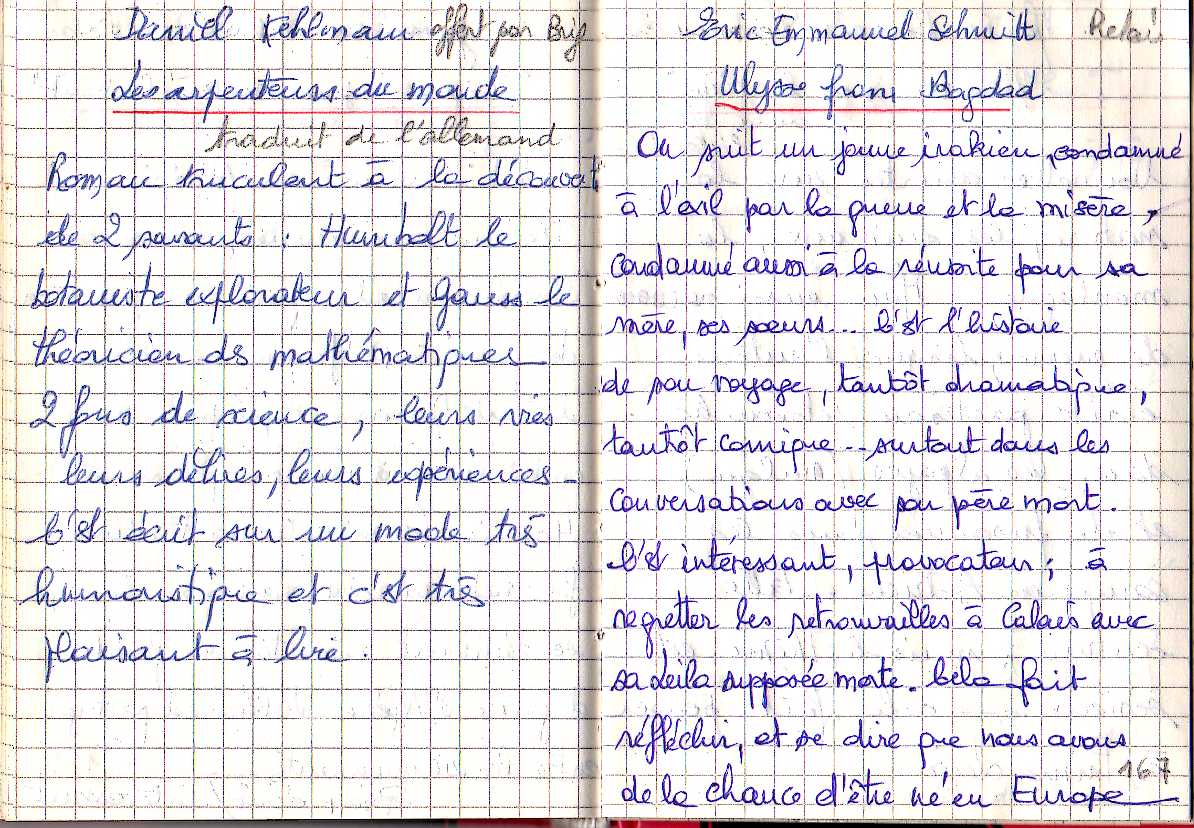 Daniel Kehlmann offert par Brig
Les arpenteurs du monde
traduit de l'allemand
Roman truculent à la découverte
de 2 savants : Humbolt le
botaniste explorateur et Gauss le
théoricien ds mathématiques
2 fous de science, leurs vies
leurs délires, leurs expériences -
C'est écrit sur un mode très
humoristique et c'est très
plaisant à lire.
Eric Emmanuel Schmitt Relais
Ulysse from Bagdad
On suit un jeune irakien, condamné
à l'exil par la guerre et la misère,
condamné aussi à la réussite pour sa
mère, ses sœurs... C'est l'histoire
de son voyage, tantôt dramatique,
tantôt comique -- surtout dans les
conversations avec son père mort.
C'est intéressant, provocateur ; à
regretter les retrouvailles à Calais avec
sa Leila supposée morte. Cela fait
réfléchir, et se dire que nous avons
de la chance d'être né en Europe
167